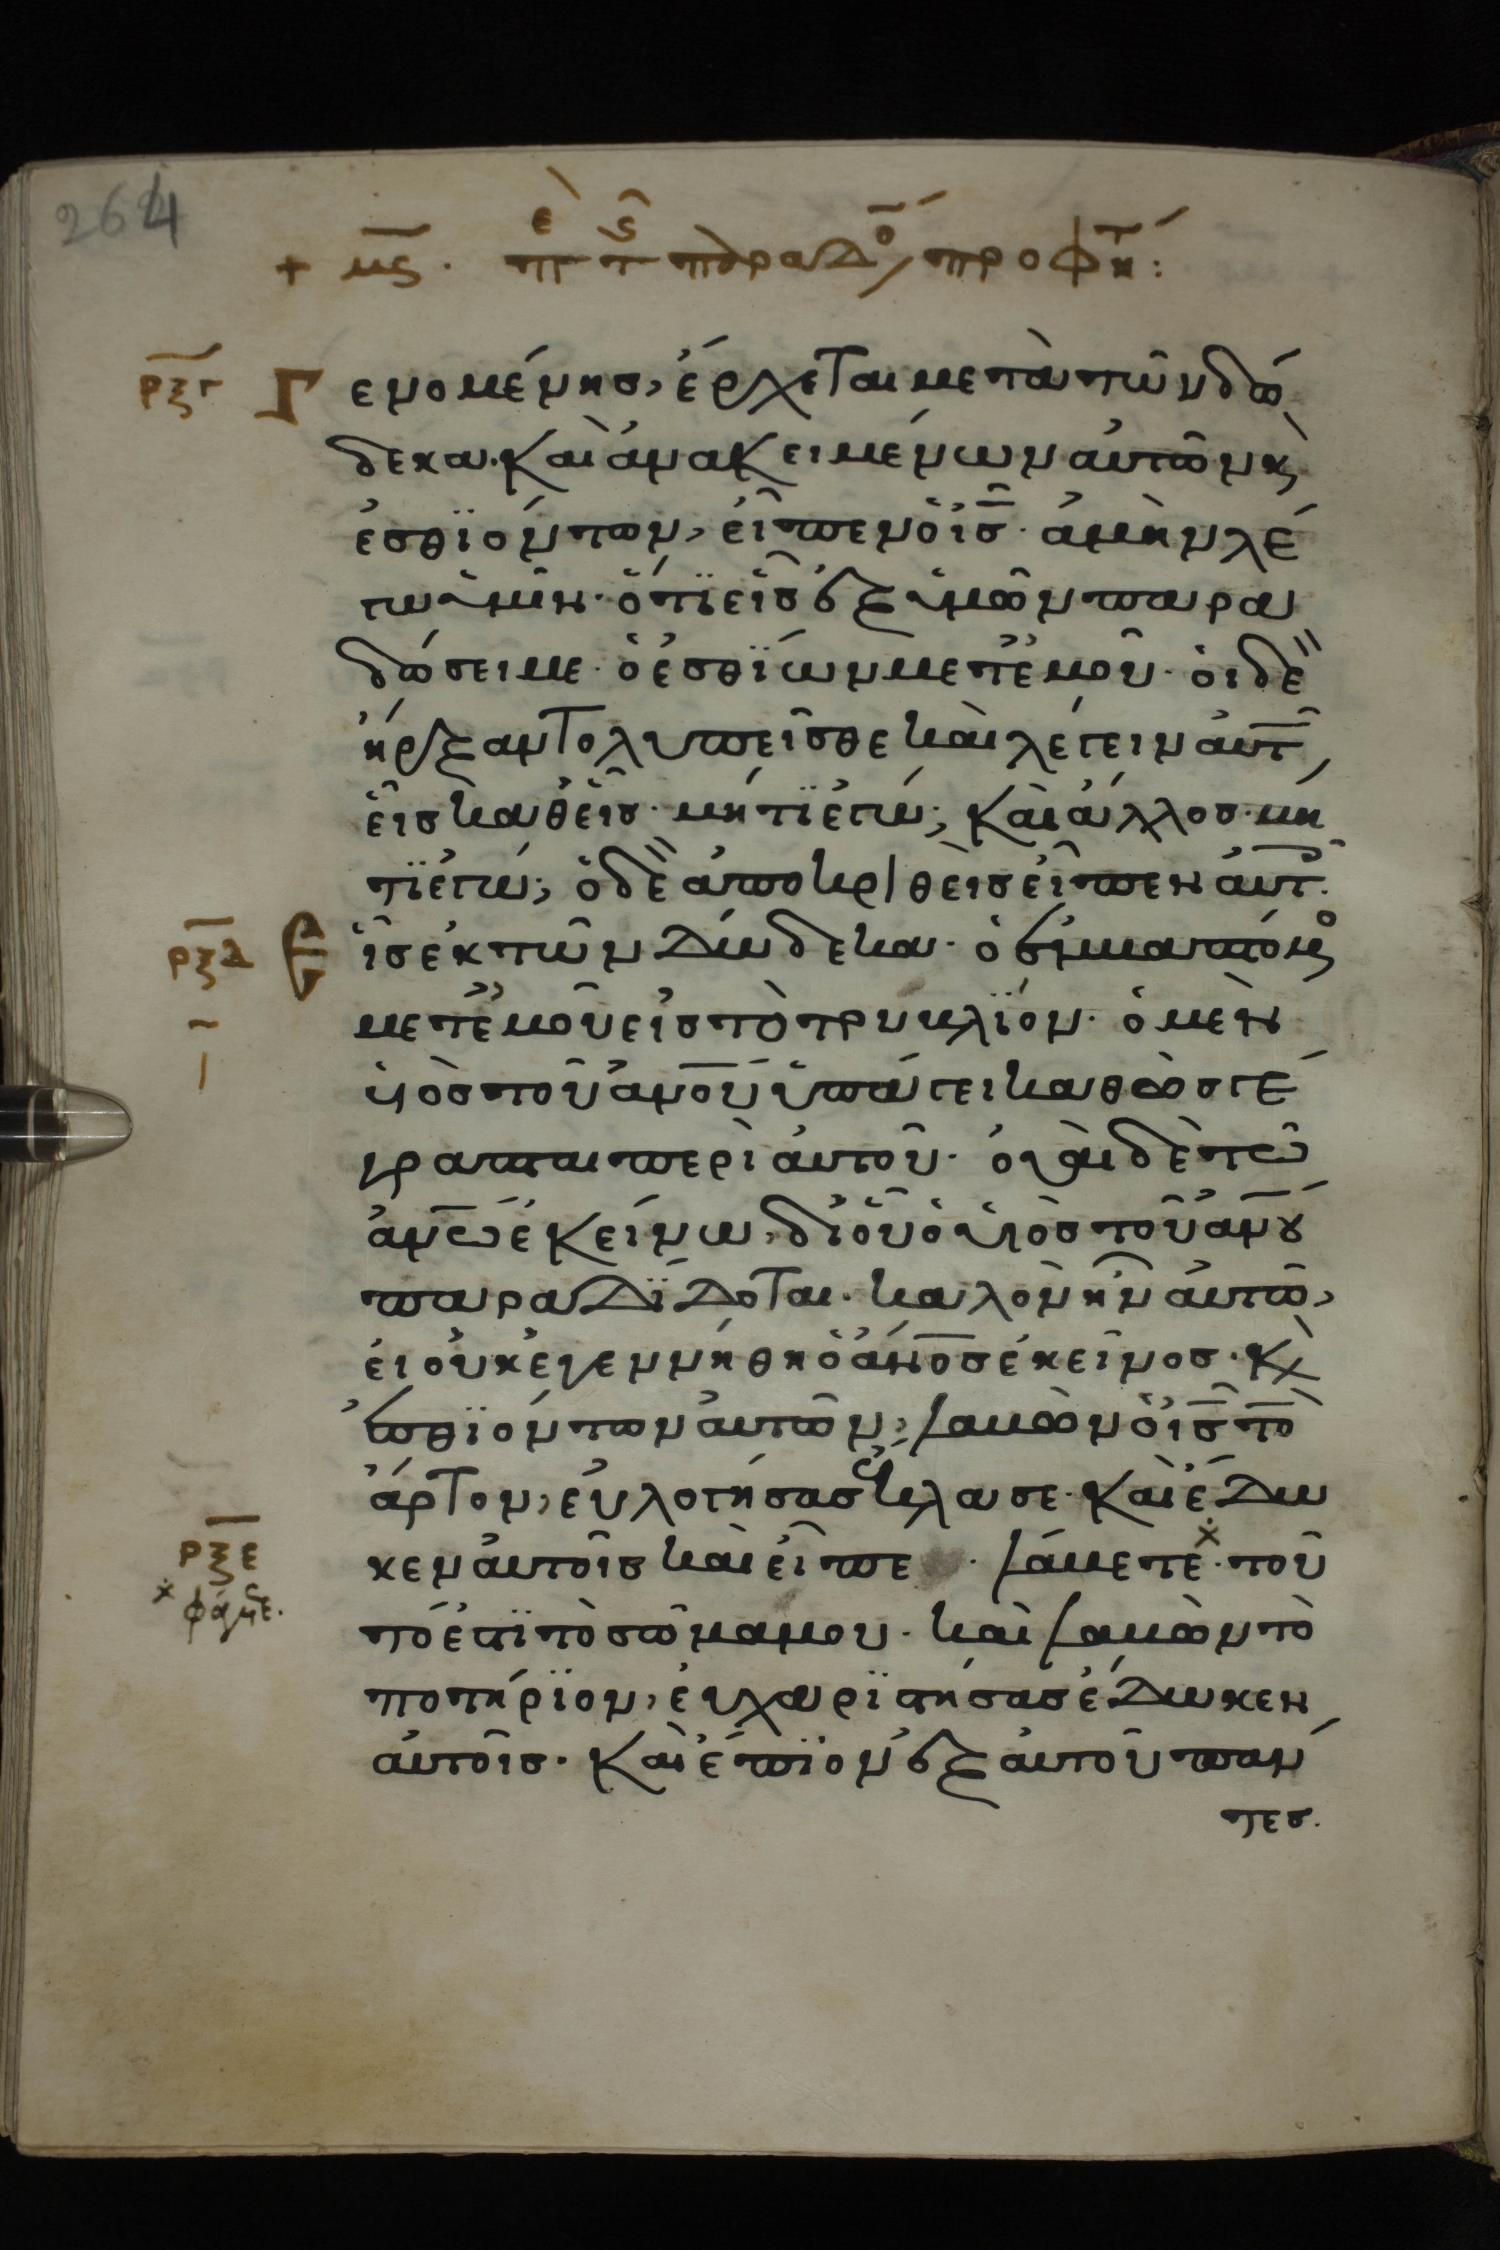 264
+ μϛ. πε τς παραδο προφητ:
ρξγ Γενομένης, ἔρχεται μετὰ τῶν δώ
δεκα. καὶ ἀνακειμένων αὐτῶν κ
ἐσθϊόντων, εἶπεν ὁ ις. ἀμὴν λέ
γω ὑμῖν. ὅτϊ εἷς ἐξ ὑμῶν παρα
δώσει με. ὁ ἐσθΐων μετ' ἐμοῦ. οἱ δὲ
ἤρξαντο λυπεῖσθε καὶ λέγειν αὐτ
εἷς καθεῖς. μήτϊ ἐγώ; καὶ ἄλλος. μή
τϊ ἐγώ; ὁ δὲ ἀποκριθεὶς εἶπεν αὐτ.
ρξδ Εἷς ἐκ τῶν δώδεκα. ὁ ἐμβαπτόμενος
μετ' ἐμοῦ εἰς τὸ τρυβλΐον. ὁ μὲν
ὑὸς τοῦ ἀνου ὑπάγει καθὼς γέ
γραπται περὶ αὐτοῦ. οὐαὶ δὲ τῶ
ἀνω ἐκείνω, δι' οὗ ὁ ὑιὸς τοῦ ἀνου
παραδΐδοται. καλὸν ἦν αὐτῶ,
εἰ οὐκ ἐγεννήθη ὁ ἄνος ἐκεῖνος. κ
ἐσθϊόντων αὐτῶν, λαβὼν ὁ ις το
ἄρτον, εὐλογήσας ἔκλασε. καὶ ἔδω
ρξε κεν αὐτοῖς καὶ εἶπε. λάβετε. τοῦ
φάγετε.
τό ἐστϊ τὸ σῶμα μου. καὶ λαβὼν τὸ
ποτήρϊον, εὐχαρϊστήσας ἔδωκεν
αὐτοῖς. καὶ ἔπϊον ἐξ αὐτοῦ πάν
τες.